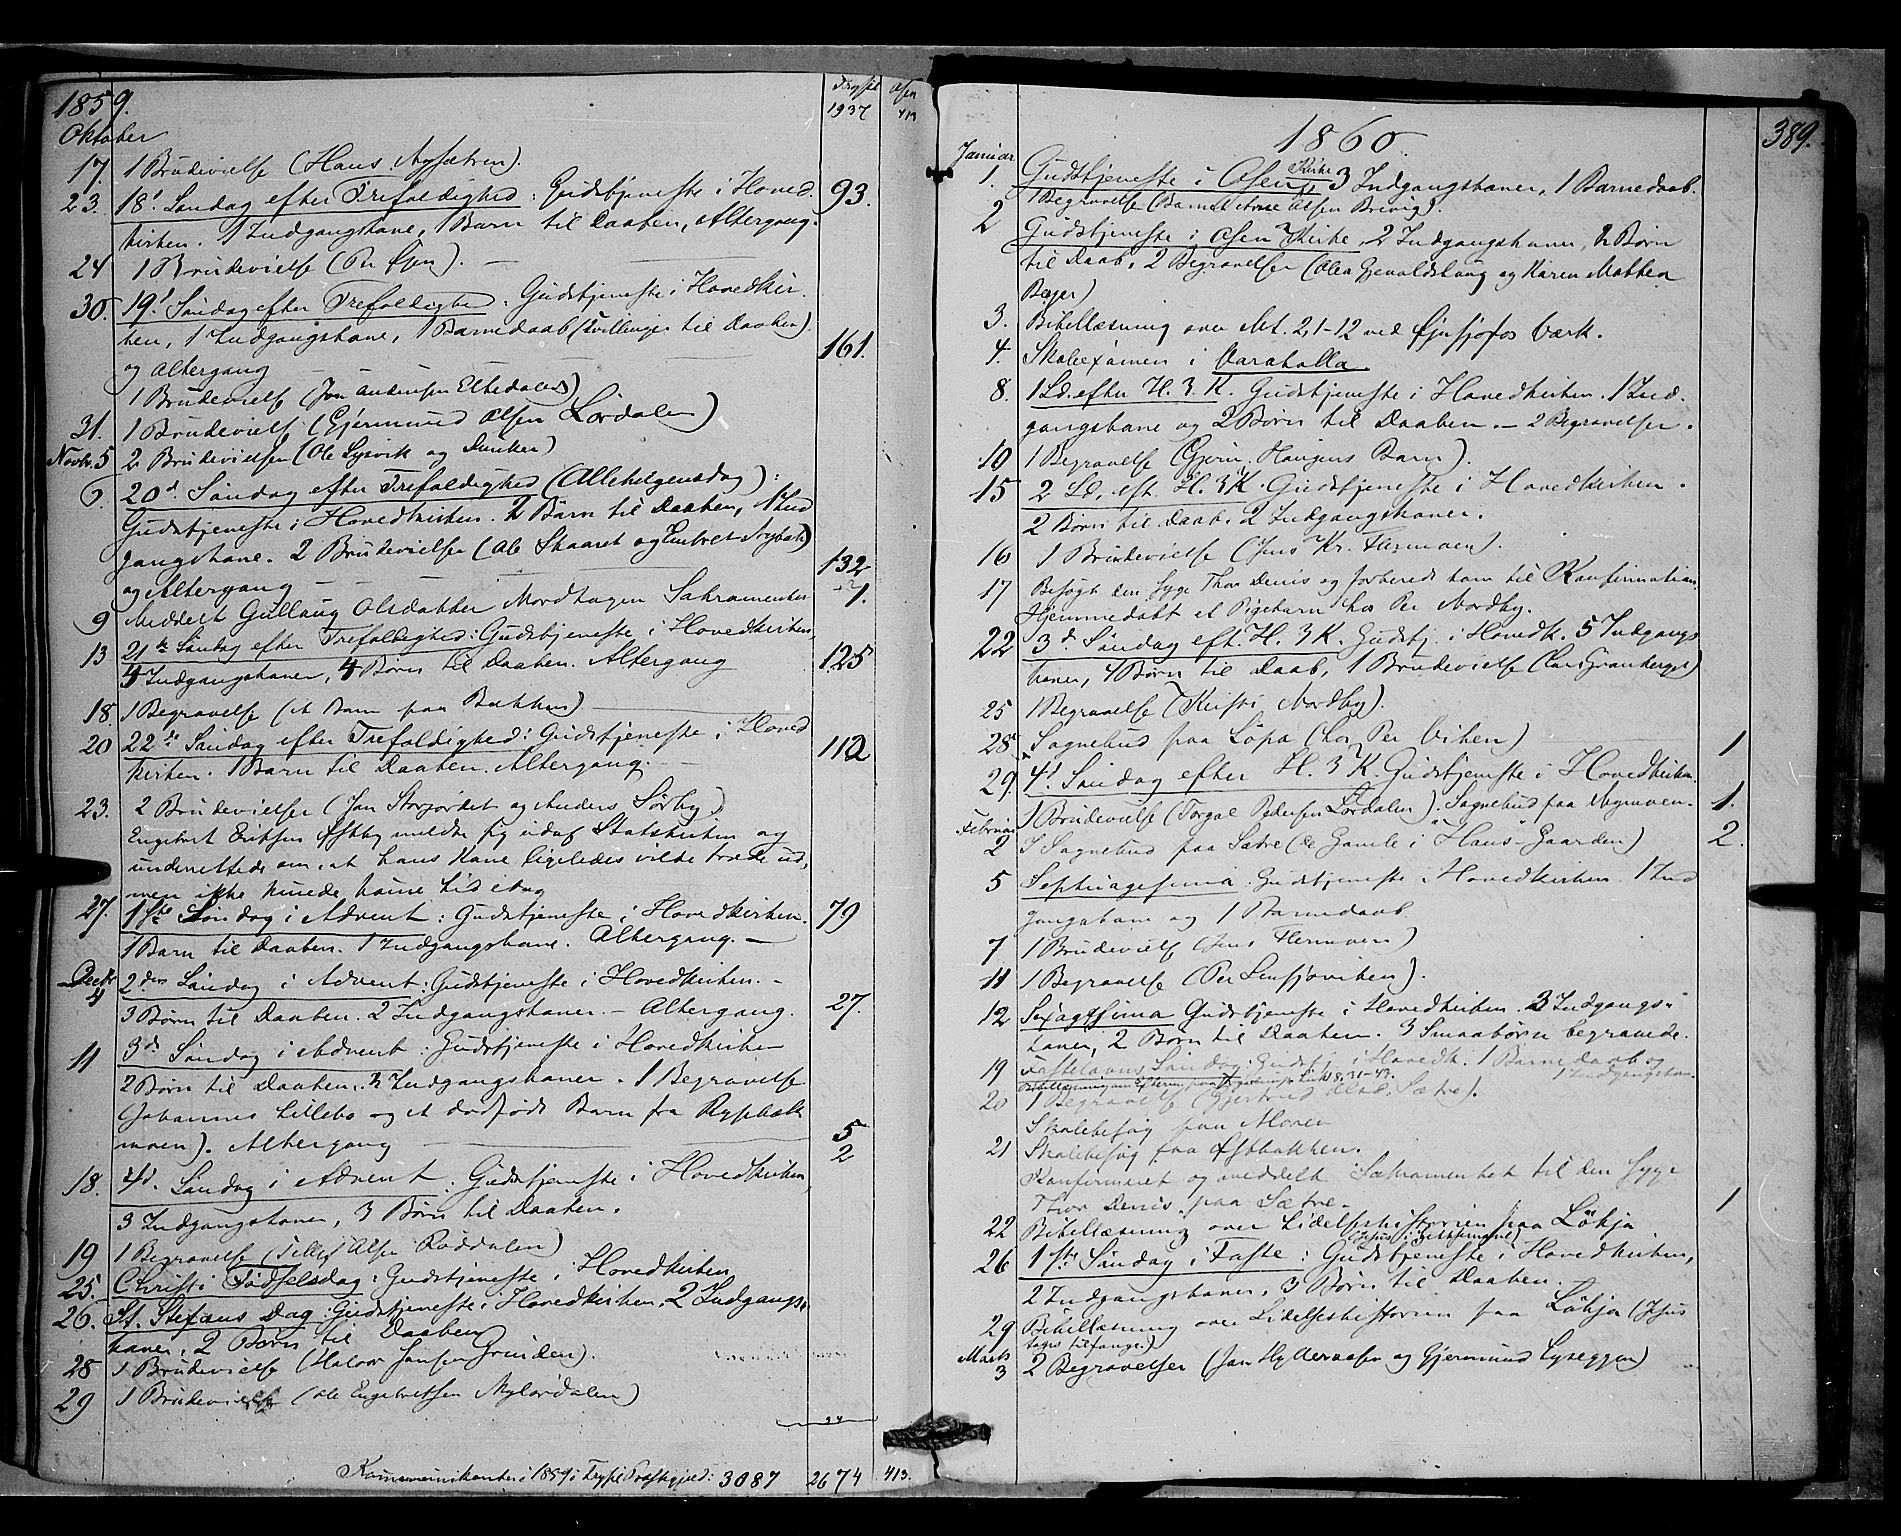 1859.
Trysil Osen
1937 413
Oktober
17 1 Brudevielse (Hans Nysætren).
23. 18d Søndag efter Trefoldighed: Gudstjeneste i Hoved 93.
kirken. 1 Indgangskone, 1 Barn til Daaben, Altergang.
24 1 Brudevielse (Per Øjen).
30. 19d Søndag efter Trefoldighed: Gudstjeneste i Hovedkir
ken, 1 Indgangskone, 1 Barnedaab (Tvillinger til Daaben) 161.
og Altergang
1 Brudevielse (Jon Andersen Eltedalen)
31. 1 Brudevielse (Gjermund Olsen Lørdalen)
Novbr. 5 2 Brudevielser (Ole Lysvik og Dunken)
6. 20d Søndag efter Trefoldighed (Allehelgensdag):
Gudstjeneste i Hovedkirken. 2 Børn til Daaben, 1 Ind
gangskone. 2 Brudevielser (Ole Skaaret og Embret Nybak) 132
og Altergang
9 Meddelt Gullaug Olsdatter Nordhagen Sakramentet 1.
13 21de Søndag efter Trefoldighed: Gudstjeneste i Hovedkirken,
4 Indgangskoner, 4 Børn til Daaben. Altergang 125
18. 1 Begravelse (et Barn paa Bakken)
20 22de Søndag efter Trefoldighed: Gudstjeneste i Hoved 112
kirken. 1 Barn til Daaben. Altergang.
23. 2 Brudevielser (Jon Storjordet og Anders Sørby)
Engebret Eriksen Østby meldte sig ud af Statskirken og
underrettede om, at hans Kone ligeledes vilde træde ud,
men ikke kunde komme hid idag
27. 1ste Søndag i Advent: Gudstjeneste i Hovedkirken. 79
1 Barn til Daaben. 1 Indgangskone. Altergang.
Decbr 4 2den Søndag i Advent: Gudstjeneste i Hovedkirken.
3 Børn til Daaben. 2 Indgangskoner. Altergang. 27.
11 3d Søndag i Advent: Gudstjeneste i Hovedkirken
2 Børn til Daaben. 2 Indgangskoner. 1 Begravelse
(Johannes Lillebo og et dødfødt Barn fra Rypbæk
moen). Altergang 5
2
18. 4d. Søndag i Advent: Gudstjeneste i Hovedkirken,
3 Indgangskoner, 3 Børn til Daaben.
19 1 Begravelse (Tellef Olsen Røddalen)
25. Christi Fødselsdag: Gudstjeneste i Hovedkirken
26. St. Stefans Dag: Gudstjeneste i Hovedkirken. 2 Indgangs
koner, 2 Børn til Daaben
28 1 Brudevielse (Halvor Jonsen Grinden).
29 1 Brudevielse (Ole Engebretsen Nylørdalen)
Kommunikanter i 1859 i Trysil Præstegjeld: 3087 2674 413.
389.
1860.
Januar
1. Gudstjeneste i Osens Kirke 3 Indgangskoner, 1 Barnedaab.
1 Begravelse (Barnet Arne Olsen Brevig).
2 Gudstjeneste i Osens Kirke, 2 Indgangskoner, 2 Børn
til Daab, 2 Begravelser (Olea Gjenoldshaug og Karen Mathea
Bøjer)
3. Bibellæsning over Mt. 2, 1-12 ved Øjusjøfos Værk.
4. Skoleexamen i Varaholla.
8. 1 Sd. efter H. 3 K. Gudstjeneste i Hovedkirken. 1 Ind
gangskone og 2 Børn til Daaben. — 2 Begravelser.
10 1 Begravelse (Gjerin Haugens Barn).
15 2 Sd. eft. H. 3 K. Gudstjeneste i Hovedkirken.
2 Børn til Daab. 2 Indgangskoner.
16 1 Brudevielse (Jens Kr. Flermoen).
17 Besøgt den syge Thor Denis og forberedt ham til Konfirmation
Hjemmedøbt et Pigebarn hos Per Nordby.
22 3d. Søndag eft. H. 3 K. Gudstj. i Hovedk. 5 Indgangs
koner, 4 Børn til Daab, 1 Brudevielse (Lars Granberget)
25 1 Begravelse (Kristi Nordby).
28 Sognebud paa Løpa (hos Per Viken) 1
29. 4d. Søndag efter H. 3 K. Gudstjeneste i Hovedkirken.
1 Brudevielse (Torgal Pedersen Lørdalen). Sognebud paa Nygmoen. 1.
Februar 2 Sognebud paa Sætre (de Gamle i "Hans"-Gaarden) 2.
5 Septuagesima Gudstjeneste i Hovedkirken 1 Ind
gangskone og 1 Barnedaab
7 1 Brudevielse (Jens Flermoen)
11 1 Begravelse (Per Sensjøviken).
12 Sexagesima Gudstjeneste i Hovedkirken. 3 Indgangs-
koner, 2 Børn til Daaben. 3 Smaabørn begravede.
19 Fastelavns Søndag: Gudstj. i Hovedk. 1 Barnedaab og
1 Indgangskone.
Luk. 8, 31-43.
20 1 Begravelse (Gjertrud Olsd. Sætre).
Skolebesøg paa Moren
21 Skolebesøg paa Østbakken.
Konfirmeret og meddelt Sakramentet til den syge
Thor Denis paa Sætre. 1
22 Bibellæsning over Lidelseshistorien paa Løkja
(Jesus i Gethsemane)
26 1ste Søndag i Faste: Gudstjeneste i Hovedkirken,
2 Indgangskoner, 3 Børn til Daaben.
29 Bibellæsning over Lidelseshistorien paa Løkja (Jesus
tages tilfange.)
Marts 3 2 Begravelser (Jon Hylleraasen og Gjermund Lyseggen)